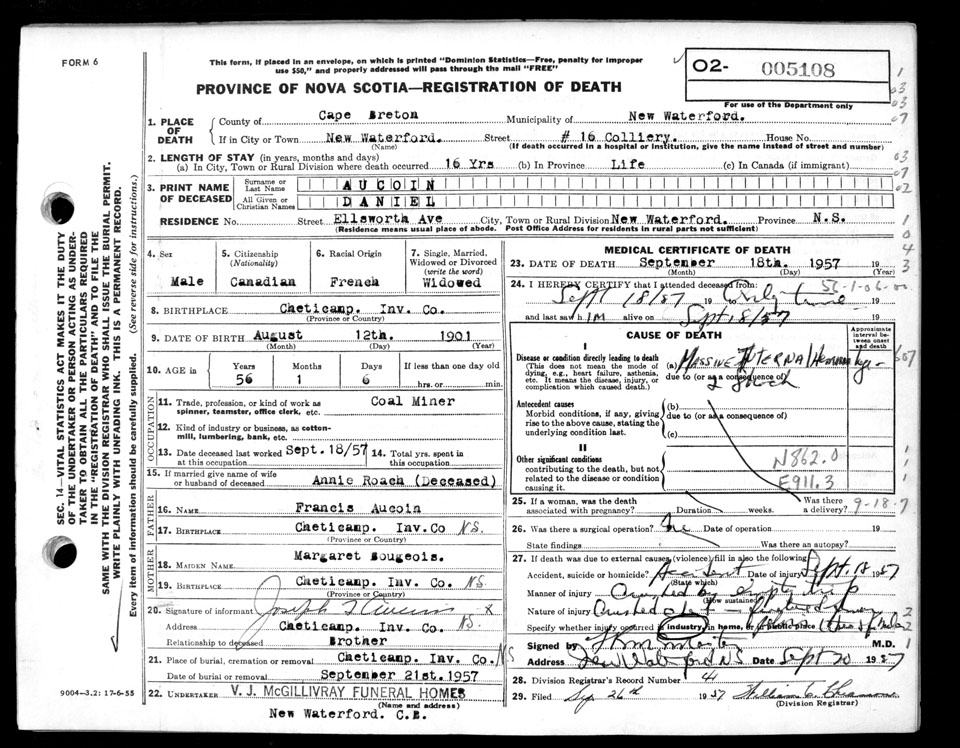 FORM 6
This form, if placed in an envelope, on which is printed "Dominion Statistics—Free, penalty for improper
use $50," and properly addressed will pass through the mail "FREE"
02- 005108
For use of the Department only
PROVINCE OF NOVA SCOTIA—REGISTRATION OF DEATH
1. PLACE OF DEATH
County of Cape Breton Municipality of New Waterford.
If in City or Town New Waterford. Street # 16 Colliery. House No.
(Name) (If death occurred in a hospital or institution, give the name instead of street and number)
2. LENGTH OF STAY (in years, months and days)
(a) In City, Town or Rural Division where death occurred 16 Yrs (b) In Province Life (c) In Canada (if immigrant)
3. PRINT NAME OF DECEASED
Surname or Last Name AUCOIN
All Given or Christian Names DANIEL
RESIDENCE No. Street Ellsworth Ave City, Town or Rural Division New Waterford. Province N.S.
(Residence means usual place of abode. Post Office Address for residents in rural parts not sufficient)
4. Sex
Male
5. Citizenship
(Nationality)
Canadian
6. Racial Origin
French
7. Single, Married,
Widowed or Divorced
(write the word)
Widowed
8. BIRTHPLACE Cheticamp. Inv. Co.
(Province or Country)
9. DATE OF BIRTH August 12th. 1901
(Month) (Day) (Year)
10. AGE in Years Months Days If less than one day old
56 1 6 hrs. or min.
OCCUPATION
11. Trade, profession or kind of work as
spinner, teamster, office clerk, etc. Coal Miner
12. Kind of industry or business, as cotton-
mill, lumbering, bank, etc.
13. Date deceased last worked Sept. 18/57 14. Total yrs. spent in
at this occupation this occupation
15. If married give name of wife
or husband of deceased Annie Roach (Deceased)
FATHER
16. NAME Francis Aucoin
17. BIRTHPLACE Cheticamp. Inv.Co NS.
(Province or Country)
MOTHER
18. MAIDEN NAME Margaret Bougeois.
19. BIRTHPLACE Cheticamp. Inv. Co. NS.
(Province or Country)
20. Signature of informant Joseph Aucoin X
Address Cheticamp. Inv. Co. NS.
Relationship to deceased Brother
21. Place of burial, cremation or removal Cheticamp. Inv. Co. NS
Date of burial September 21st.1957
22. UNDERTAKER V. J. McGILLIVRAY FUNERAL HOMES
(Name and address)
New Waterford. C.B.
MEDICAL CERTIFICATE OF DEATH
23. DATE OF DEATH September 18th. 1957 19
(Month) (Day) (Year)
24. I HEREBY CERTIFY that I attended deceased from:
Sept 18/57 19 to 19
and last saw him alive on Sept. 18/57 19
CAUSE OF DEATH
Approximate interval between onset and death
I
Disease or condition directly leading to death
(This does not mean the mode of
dying, e.g., heart failure, asthenia,
etc. It means the disease, injury, or
complication which caused death.)
(a) Massive Internal
due to (or as a consequence of)
Antecedent causes
Morbid conditions, if any, giving
rise to the above cause, stating the
underlying condition last.
(b)
due to (or as a consequence of)
(c)
II
Other significant conditions
contributing to the death, but not
related to the disease or condition
causing it.
N862.0
E911.3
25. If a woman, was the death
associated with pregnancy? Duration weeks. Was there
a delivery? 9-18-7
26. Was there a surgical operation? No Date of operation 19
State findings Was there an autopsy?
27. If death was due to external causes (violence) fill in also the following
Accident, suicide or homicide? Accident Date of injury Sept. 18 1957
(State which)
Manner of injury Crushed by empty trip
(How sustained)
Nature of injury Crushed chest
Specify whether injury occurred in industry, in home, or in public place
Signed by M.D.
Address New Waterford NS Date Sept 20 1957
28. Division Registrar's Record Number 41
29. Filed Sep. 26th 1957
(Division Registrar)
SEC. 14—VITAL STATISTICS ACT MAKES IT THE DUTY
OF THE UNDERTAKER OR PERSON ACTING AS UNDER-
TAKER TO OBTAIN ALL THE PARTICULARS REQUIRED
IN THE "REGISTRATION OF DEATH" AND TO FILE THE
SAME WITH THE DIVISION REGISTRAR WHO SHALL ISSUE THE BURIAL PERMIT.
WRITE PLAINLY WITH UNFADING INK. THIS IS A PERMANENT RECORD.
Every item of information should be carefully supplied. (See reverse side for instructions.)
9004—3.2: 17-6-55